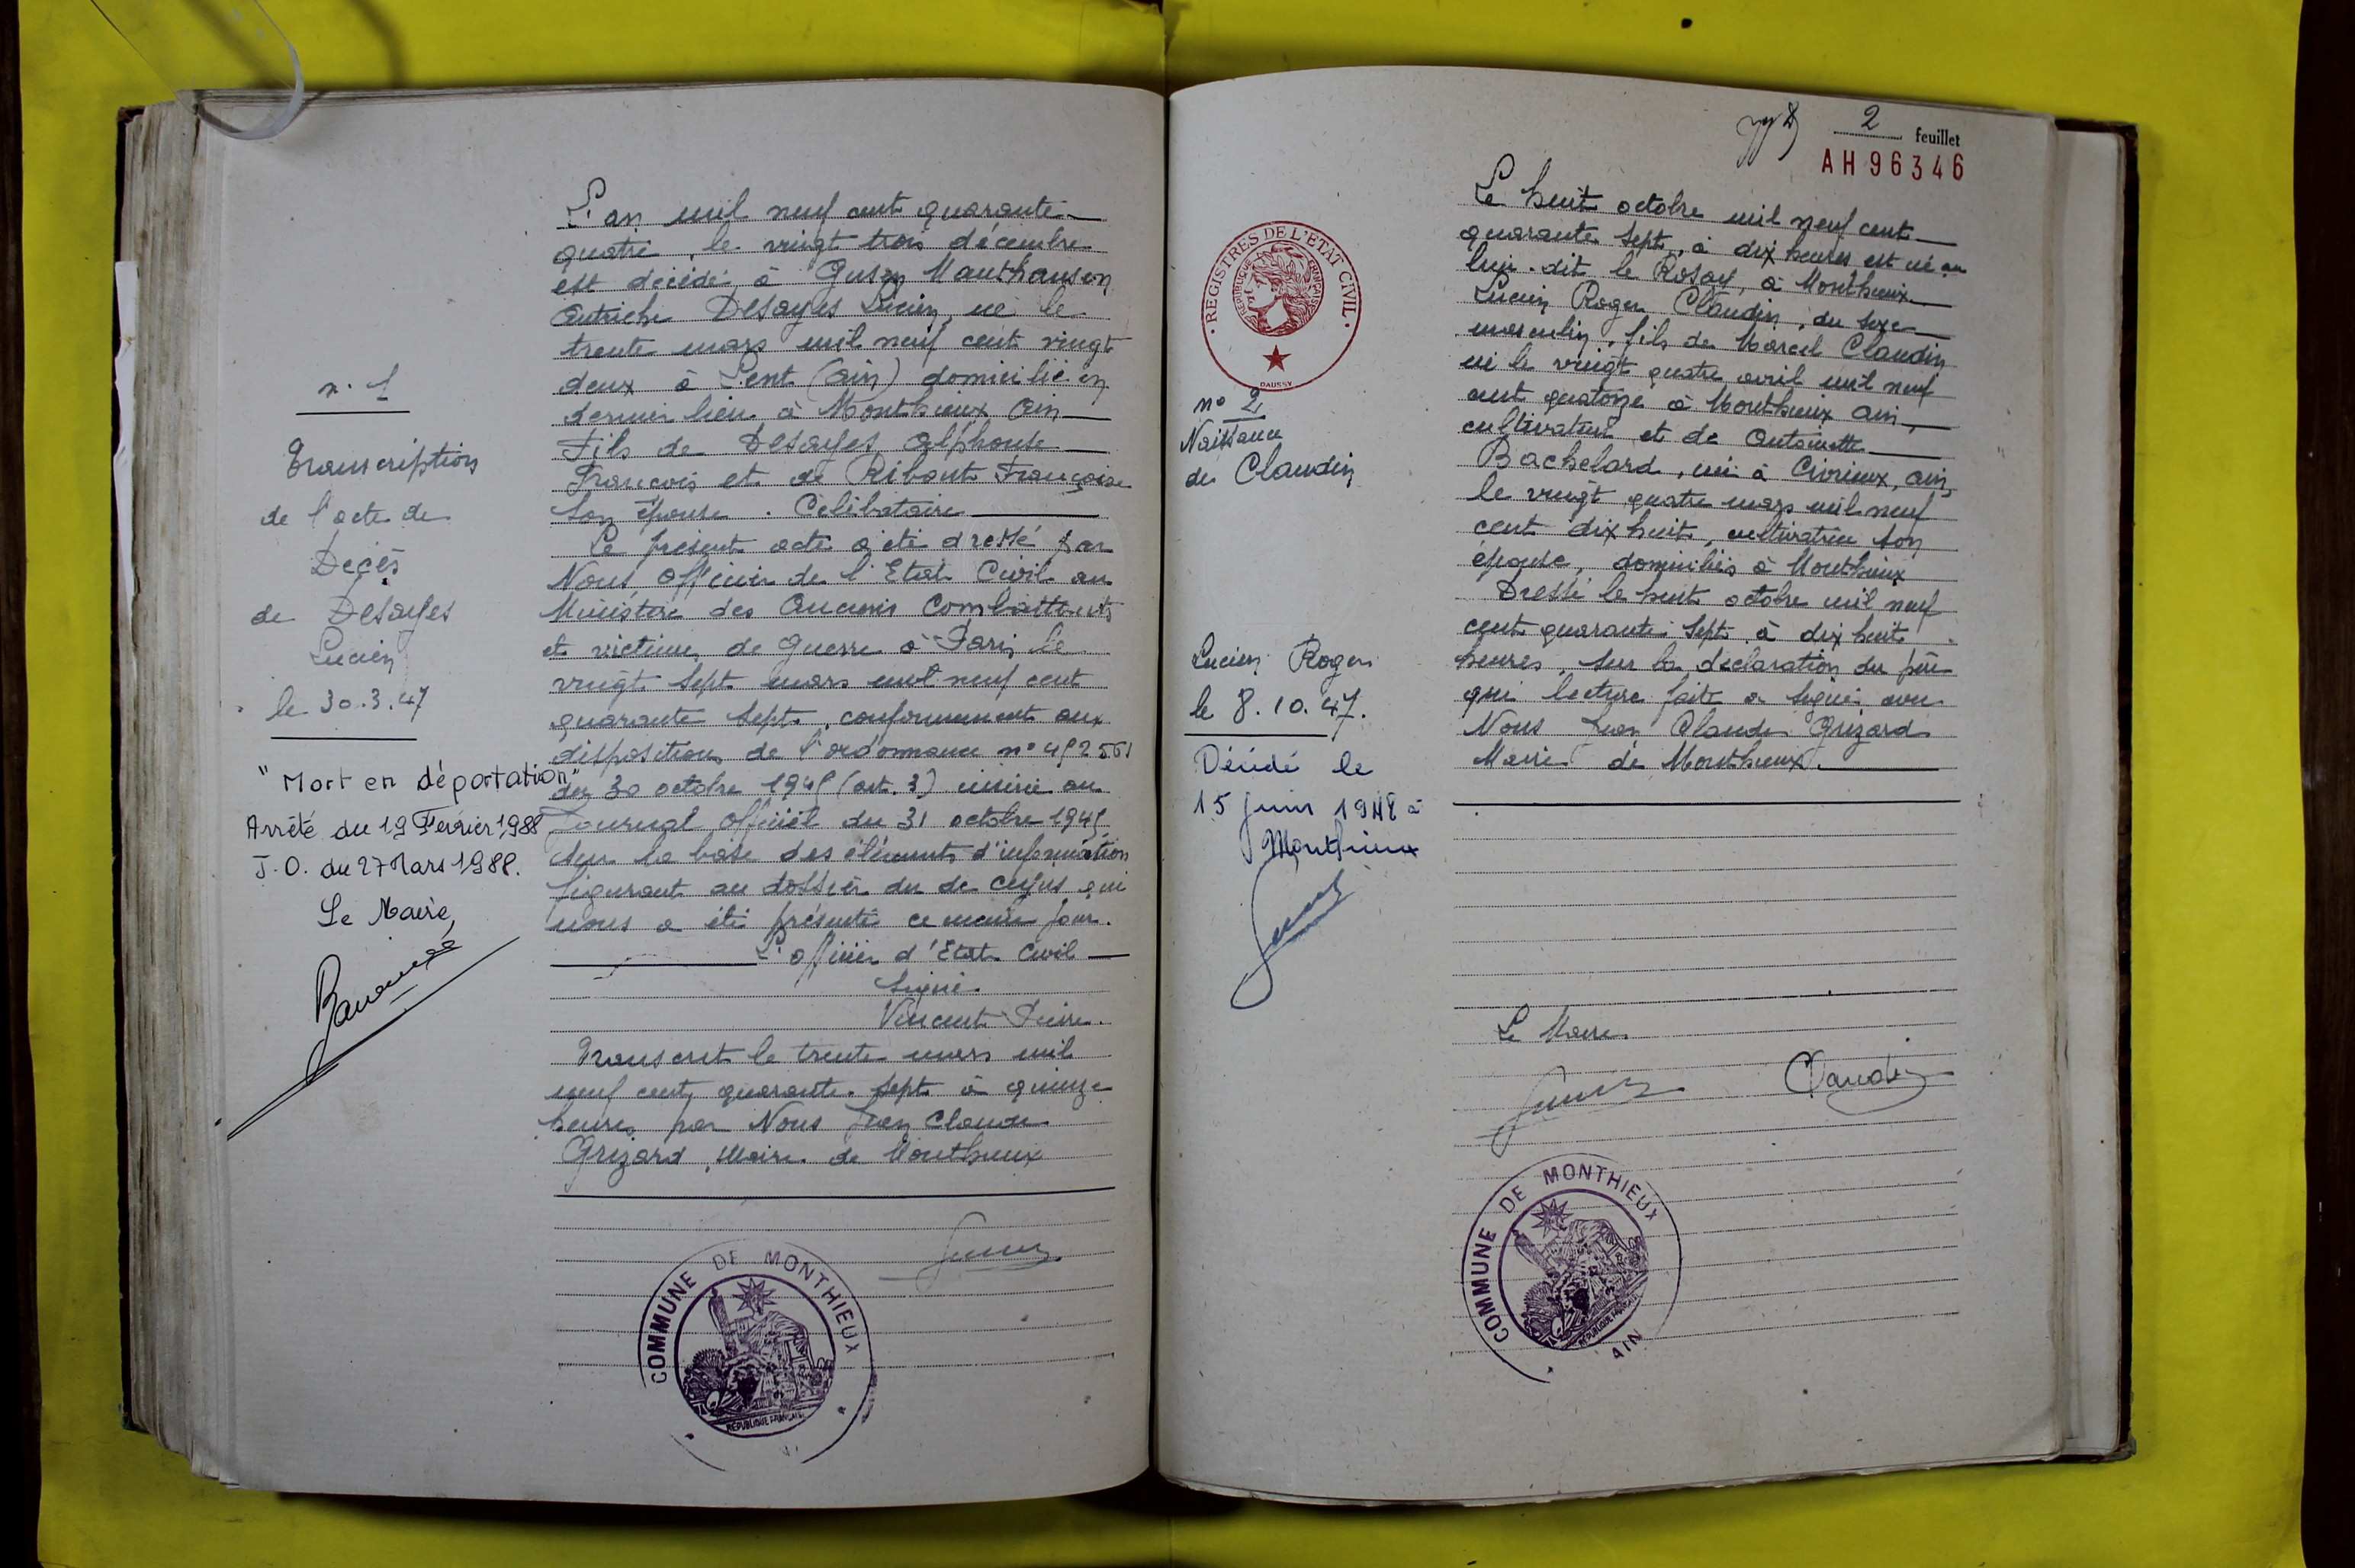 n. 1
Transcription
de l'acte de
Décès
de Desayes
Lucien
le 30.3.47
"Mort en déportation"
Arrêté du 19 Février 1988
J.O. du 27 Mars 1988.
Le Maire,
L'an mil neuf cent quarante
quatre, le vingt trois décembre
est décédé à Gusen Mauthausen
Autriche Desayes Lucien, né le
trente mars mil neuf cent vingt
deux à Lent (Ain) domicilié en
dernier lieu à Monthieux Ain
Fils de Desayes Alphonse
François et de Ribout Françoise
son épouse. Célibataire
Le présent acte a été dressé par
Nous, Officier de l'Etat Civil au
Ministère des Anciens Combattants
et victimes de Guerre à Paris le
vingt sept mars mil neuf cent
quarante sept, conformément aux
dispositions de l'ordonnance n° 452561
du 30 octobre 1945 (art. 3) insérée au
Journal Officiel du 31 octobre 1945
sur la base des éléments d'information
figurant au dossier du de cujus qui
nous a été présenté ce même jour.
L'officier d'Etat Civil
Signé.
Vincent Pierre.
Transcrit le trente mars mil
neuf cent quarante. sept à quinze
heures par Nous Jean Claude
Grizard, Maire de Monthieux
COMMUNE DE MONTHIEUX
RÉPUBLIQUE FRANÇAISE
2 feuillet
AH 96346
REGISTRES DE L'ETAT CIVIL
REPUBLIQUE FRANÇAISE
DAUSSY
n° 2
Naissance
de Claudin
Lucien Roger
le 8.10.47.
Décédé le
15 juin 1948 à
Monthieux
Le huit octobre mil neuf cent
quarante sept, à dix heures est né au
lieu. dit le Rosay, à Monthieux
Lucien Roger Claudin, du sexe
masculin, fils de Marcel Claudin
né le vingt quatre avril mil neuf
cent quatorze à Monthieux Ain,
cultivateur et de Antoinette
Bachelard, née à Civrieux, Ain,
le vingt quatre mars mil neuf
cent dix huit, cultivatrice son
épouse, domiciliés à Monthieux
Dressé le huit octobre mil neuf
cent quarante. sept à dix huit
heures, sur la déclaration du père
qui lecture faite a signé avec
Nous Jean Claude Grizard
Maire de Monthieux.
Le Maire.
Claudin
COMMUNE DE MONTHIEUX
RÉPUBLIQUE FRANÇAISE
AIN